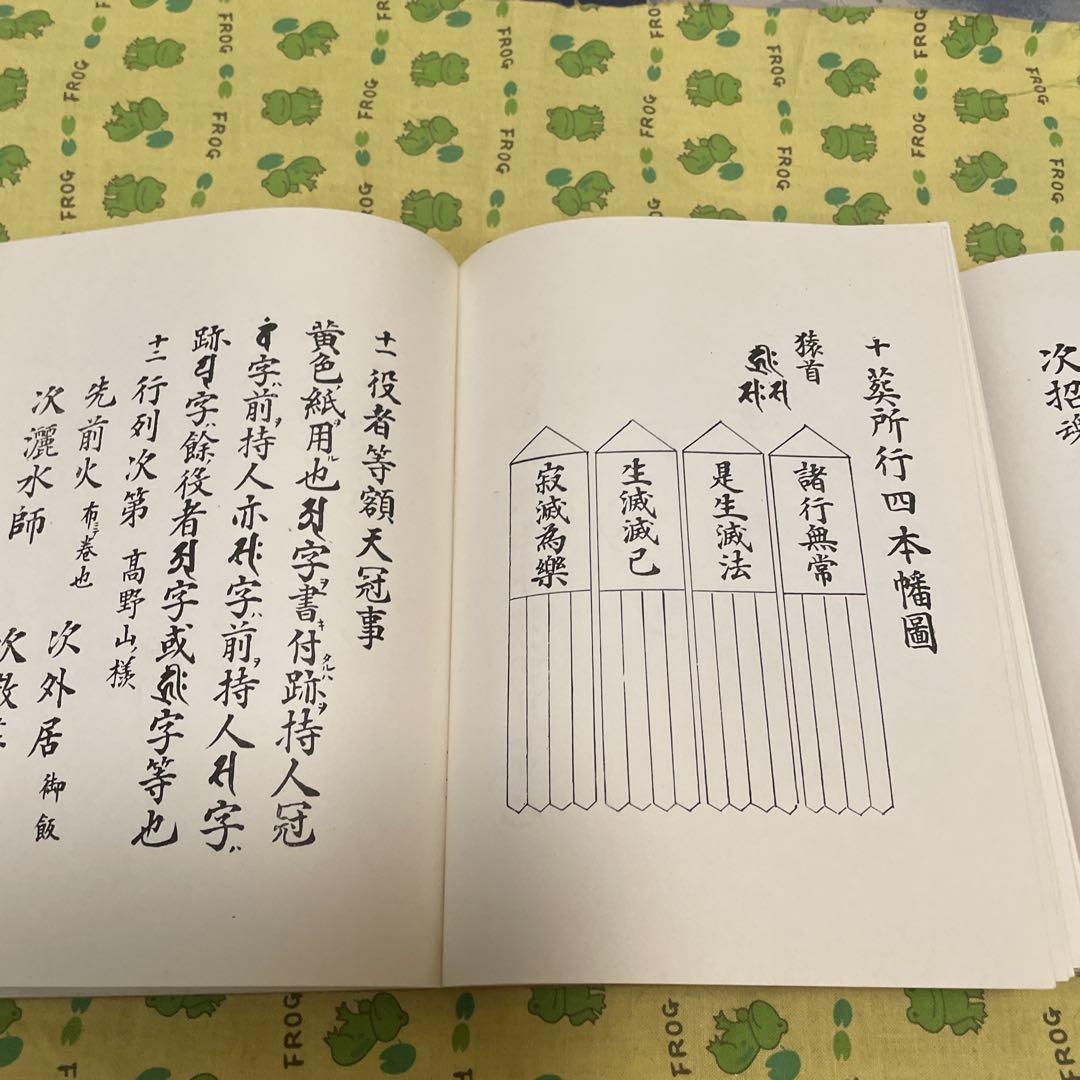 次招魂
十 葬所行四本幡圖
猿首
諸行無常
是生滅法
生滅滅已
寂滅為樂
十一 役者等額天冠事
黄色紙用ヲル也 字ヲ書キ付タルハ跡ヲ持人冠
字ハ前ヲ持人亦 字ハ前ヲ持人 字ハ
跡 字ハ餘ノ役者 字或 字等也
十二 行列次第 高野山ノ様
先前火 布ニテ巻也
次灑水師
次外居 御飯
FROG